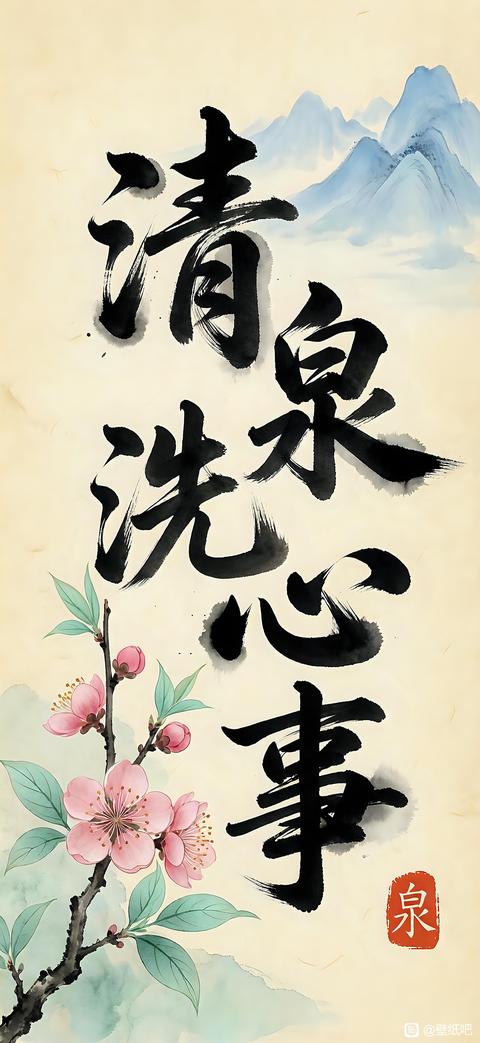 清泉洗心事
泉
@壁纸吧